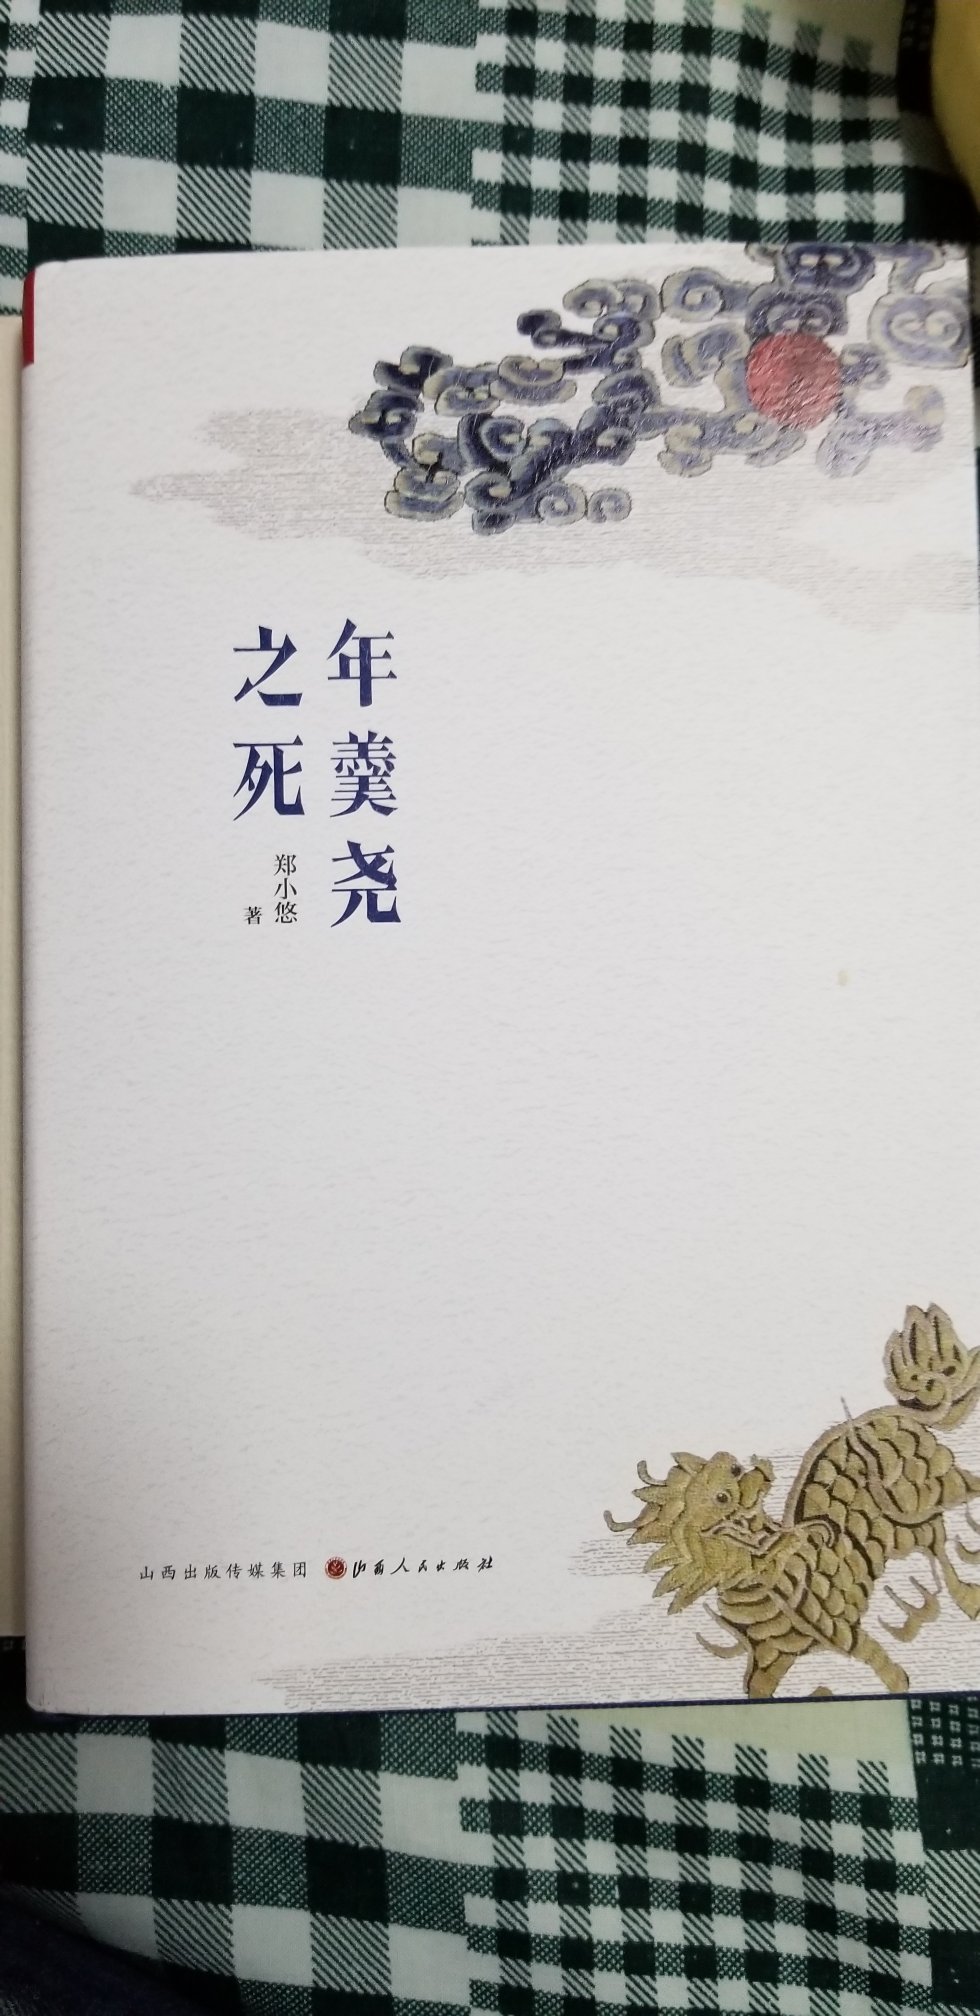 年羹尧
之死
郑小悠
著
山西出版传媒集团 山西人民出版社